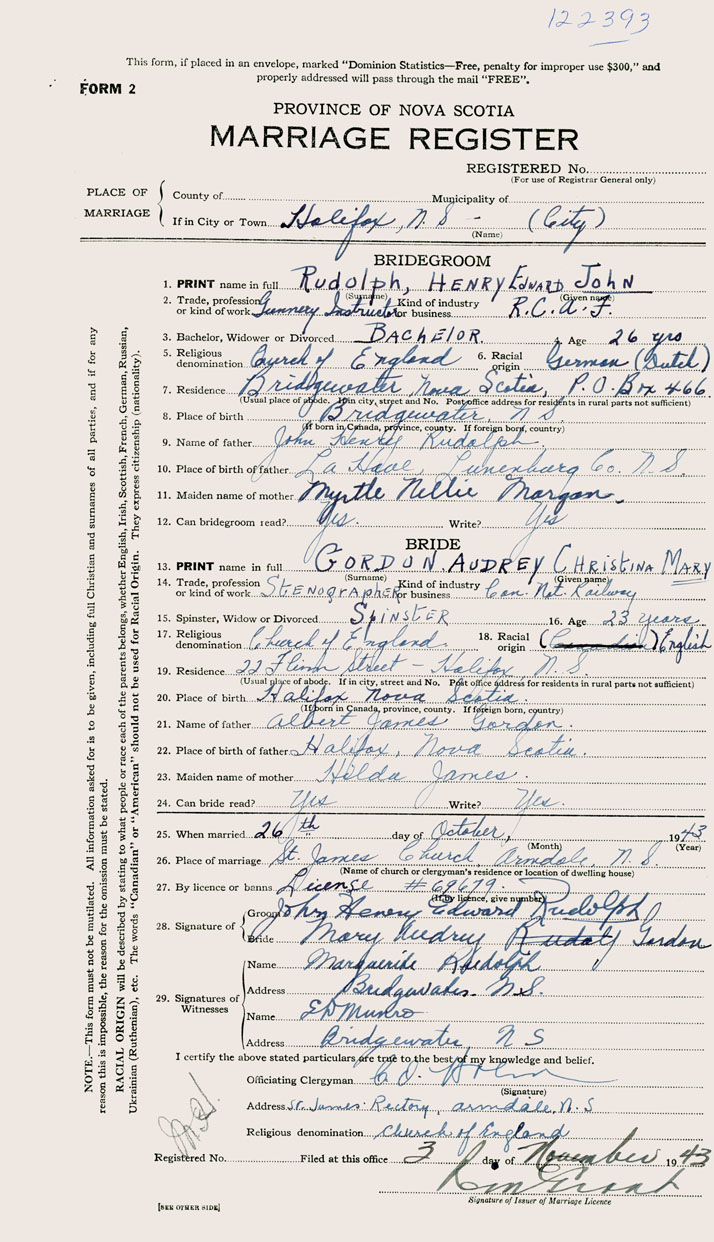 122393
This form, if placed in an envelope, marked "Dominion Statistics—Free, penalty for improper use $300," and
properly addressed will pass through the mail "FREE".
FORM 2
PROVINCE OF NOVA SCOTIA
MARRIAGE REGISTER
REGISTERED No.
(For use of Registrar General only)
PLACE OF MARRIAGE
County of Municipality of
If in City or Town Halifax, N.S - (City)
(Name)
BRIDEGROOM
1. PRINT name in full RUDOLPH, HENRY EDWARD JOHN
(Surname) (Given name)
2. Trade, profession or kind of work Gunnery Instructor Kind of industry or business R.C.A.F.
3. Bachelor, Widower or Divorced BACHELOR. 4. Age 26 yrs
5. Religious denomination Church of England 6. Racial origin German (Dutch)
7. Residence Bridgewater, Nova Scotia, P.O. Box 466
(Usual place of abode. If in city, street and No. Post office address for residents in rural parts not sufficient)
8. Place of birth Bridgewater, N.S.
(If born in Canada, province, county. If foreign born, country)
9. Name of father John Henry Rudolph.
10. Place of birth of father La Have, Lunenburg Co. N.S.
11. Maiden name of mother Myrtle Nellie Morgan
12. Can bridegroom read? Yes. Write? Yes
BRIDE
13. PRINT name in full GORDON. AUDREY CHRISTINA MARY
(Surname) (Given name)
14. Trade, profession or kind of work STENOGRAPHER Kind of industry or business Can. Nat. Railway
15. Spinster, Widow or Divorced SPINSTER 16. Age 23 years
17. Religious denomination Church of England. 18. Racial origin (Canadian) English
19. Residence 22 Flinn Street - Halifax, N.S.
(Usual place of abode. If in city, street and No. Post office address for residents in rural parts not sufficient)
20. Place of birth Halifax Nova Scotia.
(If born in Canada, province, county. If foreign born, country)
21. Name of father Albert James Gordon.
22. Place of birth of father Halifax, Nova Scotia.
23. Maiden name of mother Hilda James.
24. Can bride read? Yes Write? Yes.
25. When married 26th day of October, 1943
(Month) (Year)
26. Place of marriage St. James Church, Armdale, N.S.
(Name of church or clergyman's residence or location of dwelling house)
27. By licence or banns License #69679.
(If by licence, give number)
28. Signature of
Groom John Henry Edward Rudolph
Bride Mary Audrey Rudolf Gordon
29. Signatures of Witnesses
Name Marguerite Rudolph
Address Bridgewater N.S.
Name E D Munro
Address Bridgewater, N S
I certify the above stated particulars are true to the best of my knowledge and belief.
Officiating Clergyman
(Signature)
Address St. James Rectory, Armdale, N.S
Religious denomination Church of England
Registered No. Filed at this office 3 day of November 1943
Signature of Issuer of Marriage Licence
[SEE OTHER SIDE]
NOTE.—This form must not be mutilated. All information asked for is to be given, including full Christian and surnames of all parties, and if for any
reason this is impossible, the reason for the omission must be stated.
RACIAL ORIGIN will be described by stating to what people or race each of the parents belongs, whether English, Irish, Scottish, French, German, Russian,
Ukrainian (Ruthenian), etc. The words "Canadian" or "American" should not be used for Racial Origin. They express citizenship (nationality).